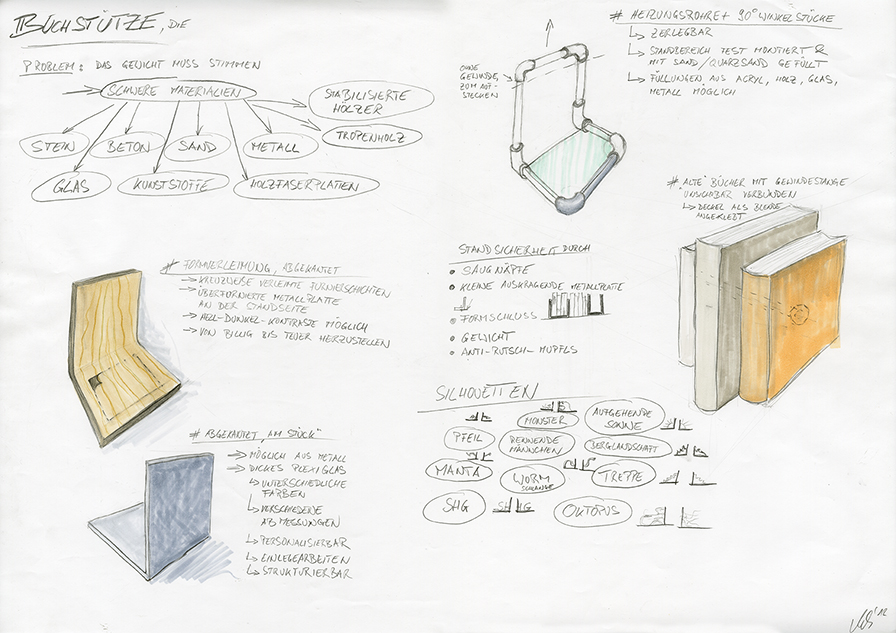 BUCHSTÜTZE, DIE
PROBLEM: DAS GEWICHT MUSS STIMMEN
SCHWERE MATERIALIEN
STABILISIERTE
HÖLZER
TROPENHOLZ
STEIN
BETON
SAND
METALL
GLAS
KUNSTSTOFFE
HOLZFASERPLATTEN
# FORMVERLEIMUNG, ABGEKANTET
KREUZWEISE VERLEIMTE FURNIERSCHICHTEN
ÜBERFURNIERTE METALLPLATTE
AN DER STANDSEITE
HELL-DUNKEL-KONTRASTE MÖGLICH
VON BILLIG BIS TEUER HERZUSTELLEN
# ABGEKANTET „AM STÜCK"
MÖGLICH AUS METALL
DICKES PLEXIGLAS
UNTERSCHIEDLICHE
FARBEN
VERSCHIEDENE
ABMESSUNGEN
PERSONALISIERBAR
EINLEGEARBEITEN
STRUKTURIERBAR
# HEIZUNGSROHRE + 90° WINKELSTÜCKE
ZERLEGBAR
STANDBEREICH FEST MONTIERT &
MIT SAND/QUARZSAND GEFÜLLT
FÜLLUNGEN AUS ACRYL, HOLZ, GLAS,
METALL MÖGLICH
OHNE
GEWINDE,
ZUM AUF-
STECKEN
# „ALTE" BÜCHER MIT GEWINDESTANGE
UNSICHTBAR VERBUNDEN
DECKEL ALS BLENDE
ANGEKLEBT
STANDSICHERHEIT DURCH
• SAUGNÄPFE
• KLEINE AUSKRAGENDE METALLPLATTE
• FORMSCHLUSS
• GEWICHT
• ANTI-RUTSCH-MUPFLS
SILHOUETTEN
PFEIL
MONSTER
AUFGEHENDE
SONNE
RENNENDE
MÄNNCHEN
BERGLANDSCHAFT
MANTA
WURM
SCHLANGE
TREPPE
SHG
SHG
OKTOPUS
'12